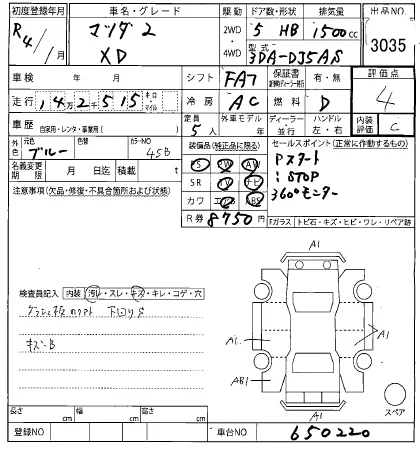 初度登録年月 車名・グレード 駆動 ドア数・形状 排気量 出品NO
R4/1月 マツダ2 2WD 5 HB 1500cc 3035
XD 4WD 型式 3DA-DJ5AS
車検 年 月 シフト FA7 保証書 有・無 評価点
走行 142515 キロ・マイル 冷房 AC 燃料 D 4
車歴 自家用・レンタ・事業用( ) 定員 5人 外車モデル 年 ディーラー・並行 ハンドル 左・右 内装評価 C
外色 元色 ブルー 色替 カラーNO 45B 装備品(純正品に限る) セールスポイント(正常に作動するもの)
名義変更期限 月 日迄 積載 t PS PW AW Pスタート
注意事項(欠品・修復・不具合箇所および状態) SR TV ナビ iSTOP
カワ エアB ABS 360°モニター
R券 8750円 Fガラス トビ石・キズ・ヒビ・ワレ・リペア跡
A1
検査員記入 内装 汚レ・スレ・キズ・キレ・コゲ・穴
下回りS
キズ・B
A1 A1
AB1
A1
スペア
長さ cm 幅 cm 高さ cm
登録NO 車台NO 650220